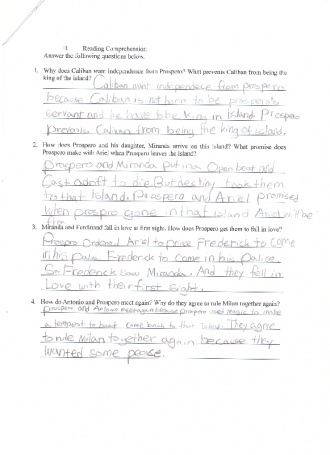 Reading Comprehension
Answer the following questions below.
1. Why does Caliban want independence from Prospero? What prevents Caliban from being the
king of the island?
Caliban want independece from prospero
because Caliban is not born to be prospero's
servant and he have to be king in Island Prospero
prevents Caliban from being the king of island.
2. How does Prospero and his daughter, Miranda arrive on this island? What promise does
Prospero make with Ariel when Prospero leaves the island?
Prospero and Miranda put in a Open boat and
Cast adrift to die. But destiny took them
to that Island. Prospero and Ariel promised
When prospro gone that island Ariel will be
3. Miranda and Ferdinand fall in love at first sight. How does Prospero get them to fall in love?
Prospro Ordered Ariel to Frederick to come
in his Frederick to come in his palice.
So Frederick saw Miranda. And they fell in
Love with their first sight.
4. How do Antonio and Prospero meet again? Why do they agree to rule Milan together again?
prospero and Antonio meet again because prospero used magic to make
a tempest to boat come back to that island. They agree
to rule Milan together again because they
wanted some peace.